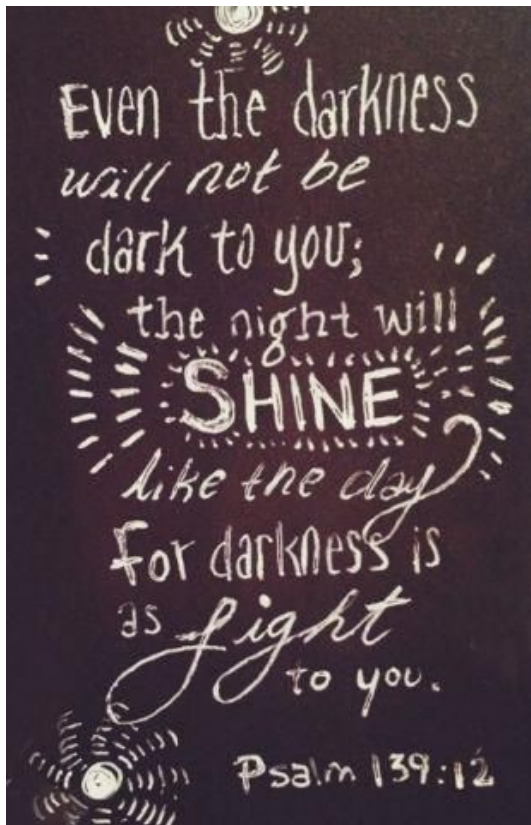 Even the darkness
will not be
dark to you;
the night will
SHINE
like the day
For darkness is
as light
to you.
Psalm 139:12